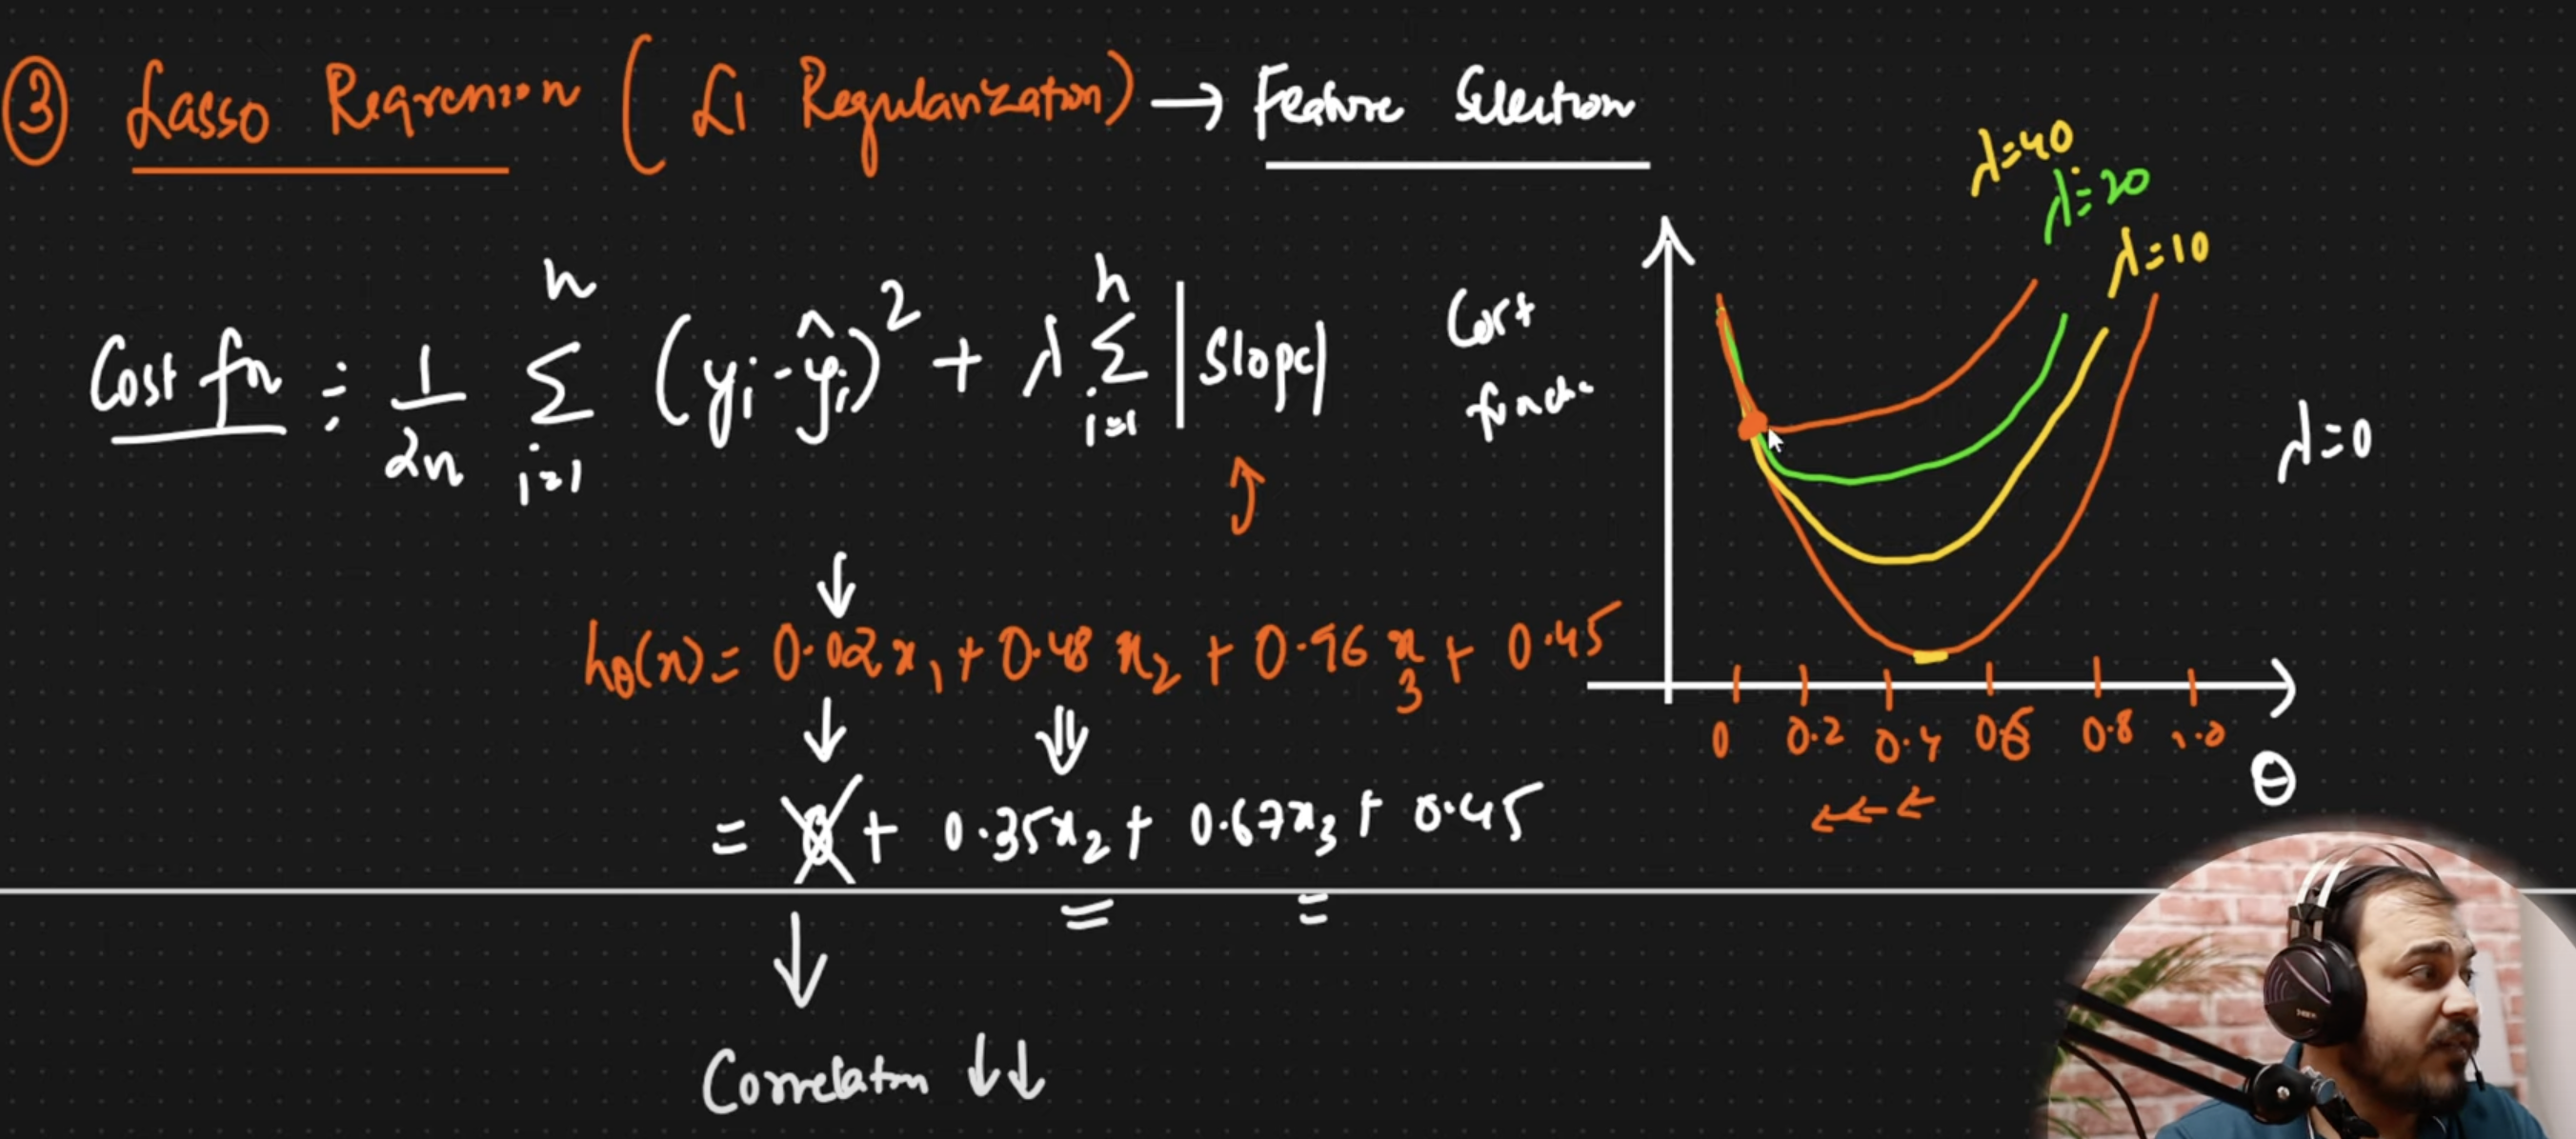 ③ Lasso Regression (L1 Regularization) → Feature Selection
Cost fn = 1/2n n Σ i=1 (yi - ŷi)² + λ n Σ i=1 |Slope|
hθ(x) = 0.02x1 + 0.48 x2 + 0.96 x3 + 0.45
= 0 + 0.35x2 + 0.67x3 + 0.45
Correlation ↓↓
Cost
λ=40
λ=20
λ=10
λ=0
0 0.2 0.4 0.6 0.8 1.0
θ